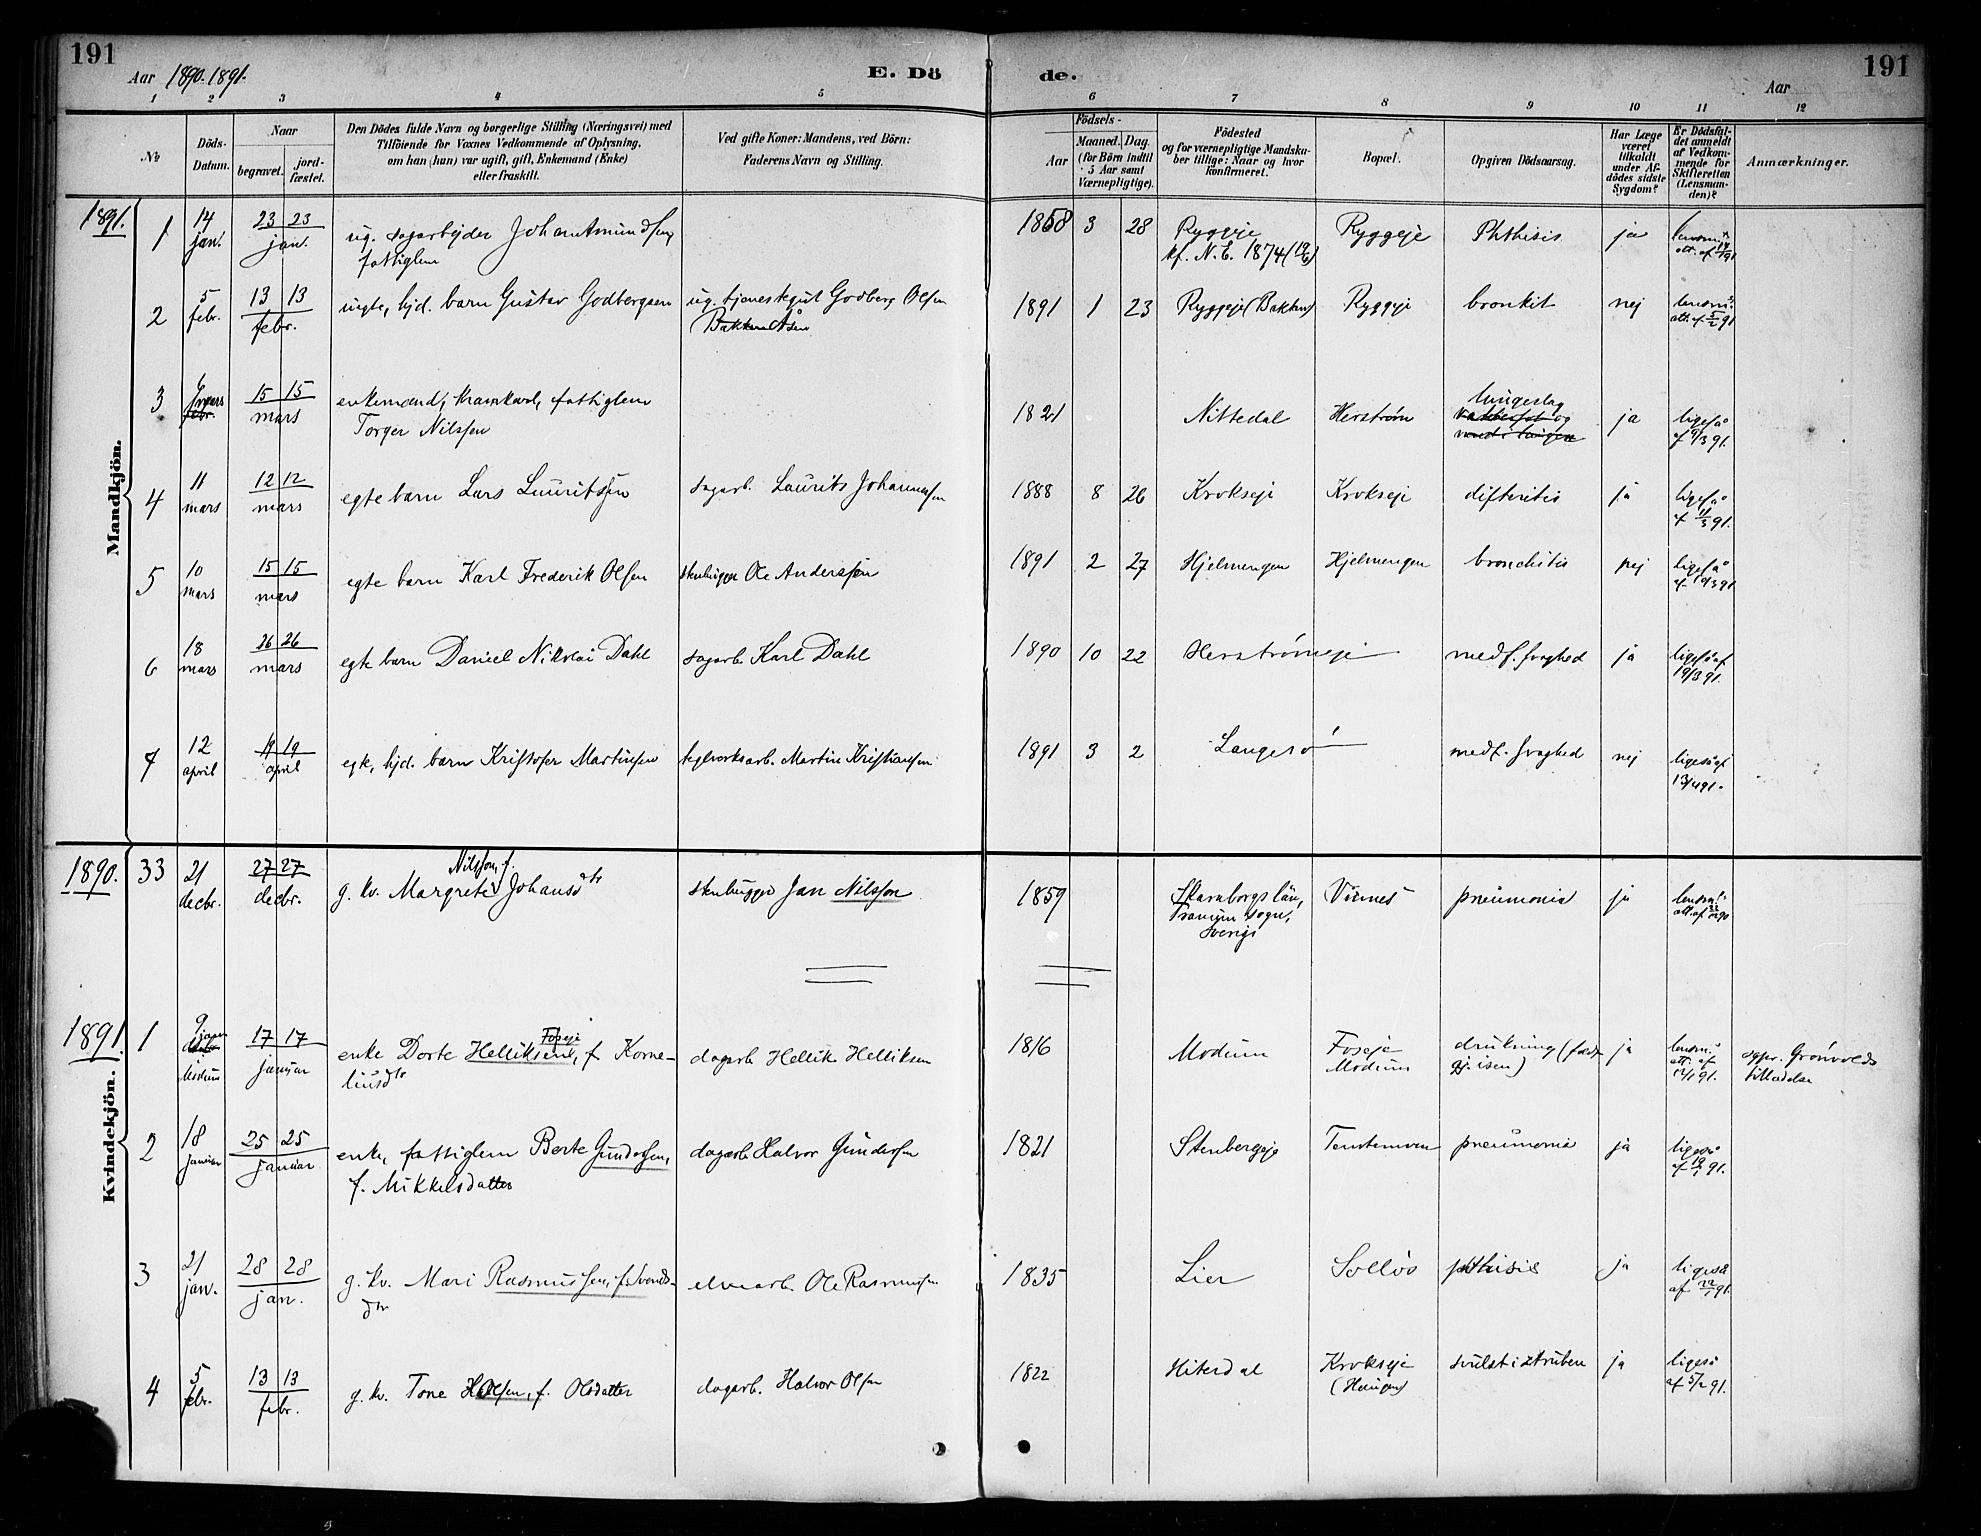 191
Aar 1890. 1891.
E. Dö
de.
Aar
191
1 2 3 4 5 6 7 8 9 10 11 12
No
Döds-
Datum.
Naar
begravet.
jord-
fæstet.
Den Dödes fulde Navn og borgerlige Stilling (Næringsvei) med
Tilföiende for Voxnes Vedkommende af Oplysning,
om han (hun) var ugift, gift, Enkemand (Enke)
eller fraskilt.
Ved gifte Koner: Mandens, ved Börn:
Faderens Navn og Stilling.
Födsels-
Aar
Maaned. Dag.
(for Börn indtil
5 Aar samt
Værnepligtige).
Födested
og for værnepligtige Mandsku-
ber tillige: Naar og hvor
konfirmeret.
Bopæl.
Opgiven Dödsaarsag.
Har Læge
været
tilkaldt
under Af-
dödes sidste
Sygdom?
Er Dödsfal-
det anmeldt
af Vedkom-
mende for
Skifteretten
(Lensman-
den)?
Anmærkninger.
Mandkjön.
1891.
1 14 jan. 23 23 jan. ug. sagarbejder Johan Amundsen, 1858 3 28 Ryggeje Ryggeje Phthisis ja
fattiglem kf. N.E. 1874
2 5 febr. 13 13 febr. uægte, hjd. barn Gustav Godbergsen ug. tjenestegut Godberg Olsen 1891 1 23 Ryggeje (Bakken) Ryggeje bronkit nej lensm. att. af 5/2 91
3 mars 15 15 mars enkemand, fattiglem 1821 Nittedal Herstrøm lungeslag ja ligeså
Torger Nilssen af 9/3 91.
4 11 mars 12 12 mars egte barn Lars Lauritsen sagarb. Laurits Johannessen 1888 8 26 Krokseje Krokseje difteritis ja ligeså
af 11/3 91.
5 10 mars 15 15 mars egte barn Karl Frederik Olsen stenhugger Ole Anderssen 1891 2 27 Hjelmengen Hjelmengen bronchitis nej ligeså
af 10/3 91
6 18 mars 26 26 mars egte barn Daniel Nikolai Dahl sagarb. Karl Dahl 1890 10 22 Herstrømseje medf. svaghed ja ligeså af
19/3 91.
7 12 april 19 19 april egte, hjd. barn Kristofer Martinsen teglverksarb. Martin Kristiansen 1891 3 2 Langesø medf. svaghed nej ligeså af
13/4 91.
Kvindekjön.
1890.
33 21 decbr. 27 27 decbr. g. kv. Margrete Nilsson, f. Johansdtr stenhugger Jan Nilsson 1859 Skaraborgs län, Vimes pneumonia ja
sogn,
Sverige
1891.
1 9 januar Modum 17 17 januar enke Dorte Helliksen, Foseje f. Korne- dagarb. Hellik Helliksen 1816 Modum Foseje drukning ja
liusdtr Modum gj. isen) Grønvolds
tilladelse
2 18 januar 25 25 januar enke, fattiglem Berte Gundersen, dagarb. Halvor Gundersen 1821 Stenbergeje pneumonia ja ligeså
f. Mikkelsdatter af 19/1 91.
3 21 jan. 28 28 jan. g. kv. Mari Rasmussen, f. Svends- elvearb. Ole Rasmussen 1835 Lier Solløs phthisis ja ligeså
dtr af 22/1 91.
4 5 febr. 13 13 febr. g. kv. Tone Olsen, f. Olsdatter dagarb. Halvor Olsen 1822 Hiterdal Krokseje svulst i struben ja ligeså
(Haugen) af 5/2 91.